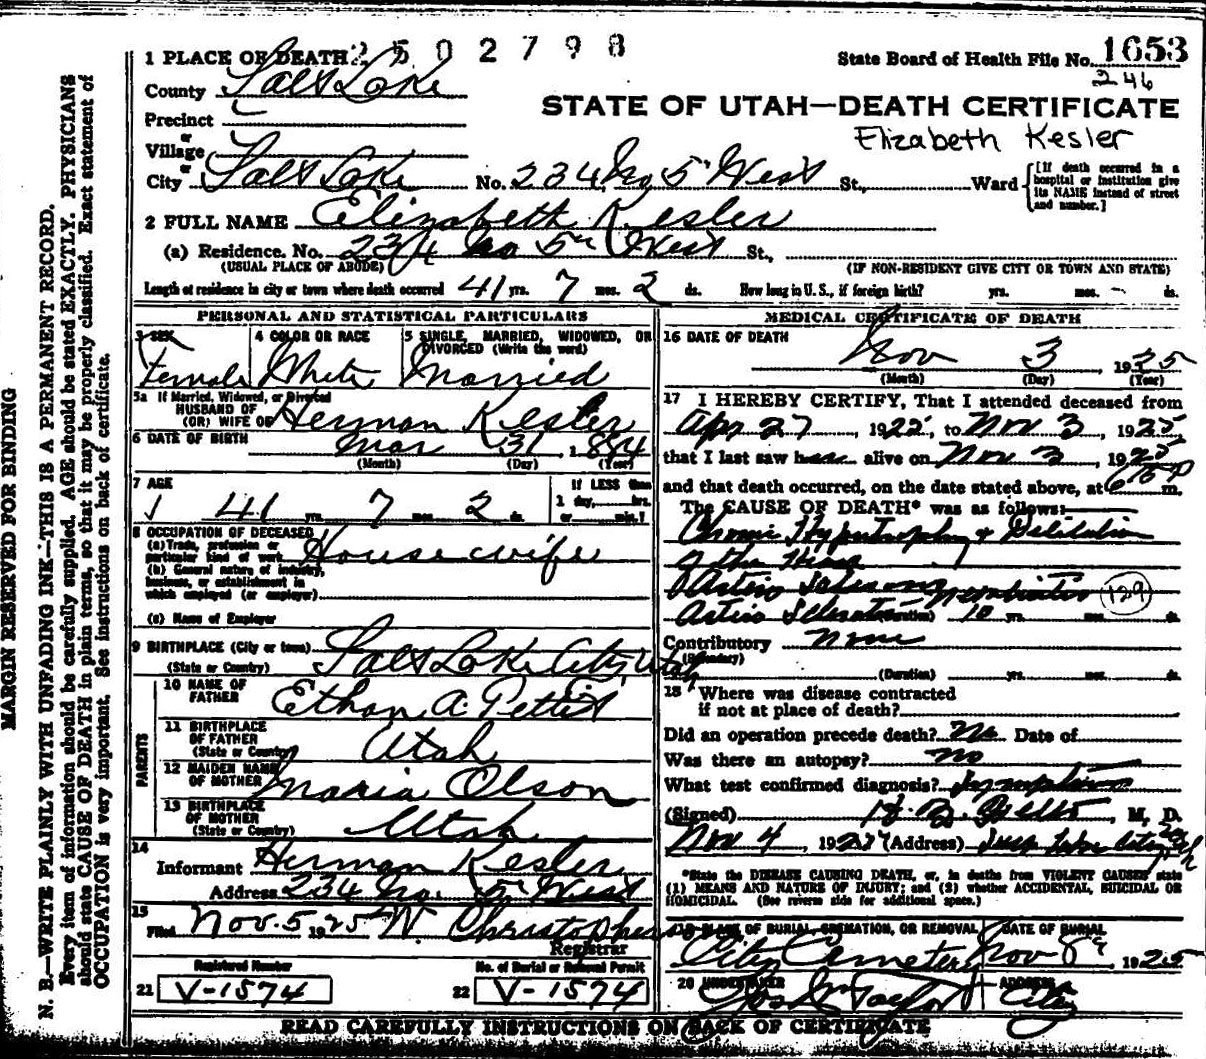 2502798
1 PLACE OF DEATH
State Board of Health File No. 1653
246
County Salt Lake
STATE OF UTAH—DEATH CERTIFICATE
Precinct
Elizabeth Kesler
or
Village
or
City Salt Lake No. 234 No 5" West St., Ward
[If death occurred in a hospital or institution give its NAME instead of street and number.]
2 FULL NAME Elizabeth Kesler
(a) Residence. No. 234 No 5" West St.,
(USUAL PLACE OF ABODE) (IF NON-RESIDENT GIVE CITY OR TOWN AND STATE)
Length of residence in city or town where death occurred 41 yrs. 7 mos. 2 ds. How long in U. S., if foreign birth? yrs. mos. ds.
PERSONAL AND STATISTICAL PARTICULARS
3 SEX 4 COLOR OR RACE 5 SINGLE, MARRIED, WIDOWED, OR DIVORCED (Write the word)
Female White Married
5a If Married, Widowed, or Divorced
HUSBAND OF
(OR) WIFE OF Herman Kesler
6 DATE OF BIRTH Mar 31 1884
(Month) (Day) (Year)
7 AGE If LESS than
41 yrs. 7 mos. 2 ds. 1 day, hrs.
or min.?
8 OCCUPATION OF DECEASED
(a) Trade, profession or
particular kind of work Housewife
(b) General nature of industry,
business, or establishment in
which employed (or employer)
(c) Name of Employer
9 BIRTHPLACE (City or town) Salt Lake City, Utah
(State or Country)
PARENTS
10 NAME OF
FATHER Ethan A. Pettit
11 BIRTHPLACE
OF FATHER Utah
(State or Country)
12 MAIDEN NAME
OF MOTHER Maria Olson
13 BIRTHPLACE
OF MOTHER Utah
(State or Country)
14
Informant Herman Kesler
Address 234 No. 5" West
15
Filed Nov. 5 1925 W Christopherson
Registrar
Registered Number No. of Burial or Removal Permit
21 V-1574 22 V-1574
MEDICAL CERTIFICATE OF DEATH
16 DATE OF DEATH
Nov 3 1925
(Month) (Day) (Year)
17 I HEREBY CERTIFY, That I attended deceased from
Apr 27, 1922, to Nov 3, 1925,
that I last saw h alive on Nov 3, 1925
and that death occurred, on the date stated above, at 6 15 P m.
The CAUSE OF DEATH* was as follows:
Chronic Hypertrophy & Delitation
of the Heart
Nephritis 129
Arterio (Duration) 10 yrs. ds.
Contributory None
(Secondary)
(Duration) yrs. mos. ds.
18 Where was disease contracted
if not at place of death?
Did an operation precede death? No Date of
Was there an autopsy? No
What test confirmed diagnosis? Symptoms
(Signed) M. D.
Nov 4, 192 (Address)
*State the DISEASE CAUSING DEATH, or, in deaths from VIOLENT CAUSES state
(1) MEANS AND NATURE OF INJURY; and (2) whether ACCIDENTAL, SUICIDAL OR
HOMICIDAL. (See reverse side for additional space.)
19 PLACE OF BURIAL, CREMATION, OR REMOVAL DATE OF BURIAL
City Cemetery Nov 8" 1925
20 UNDERTAKER ADDRESS
Jos Wm Taylor City
READ CAREFULLY INSTRUCTIONS ON BACK OF CERTIFICATE
MARGIN RESERVED FOR BINDING
N. B.—WRITE PLAINLY WITH UNFADING INK—THIS IS A PERMANENT RECORD.
Every item of information should be carefully supplied. AGE should be stated EXACTLY. PHYSICIANS
should state CAUSE OF DEATH in plain terms, so that it may be properly classified. Exact statement of
OCCUPATION is very important. See instructions on back of certificate.